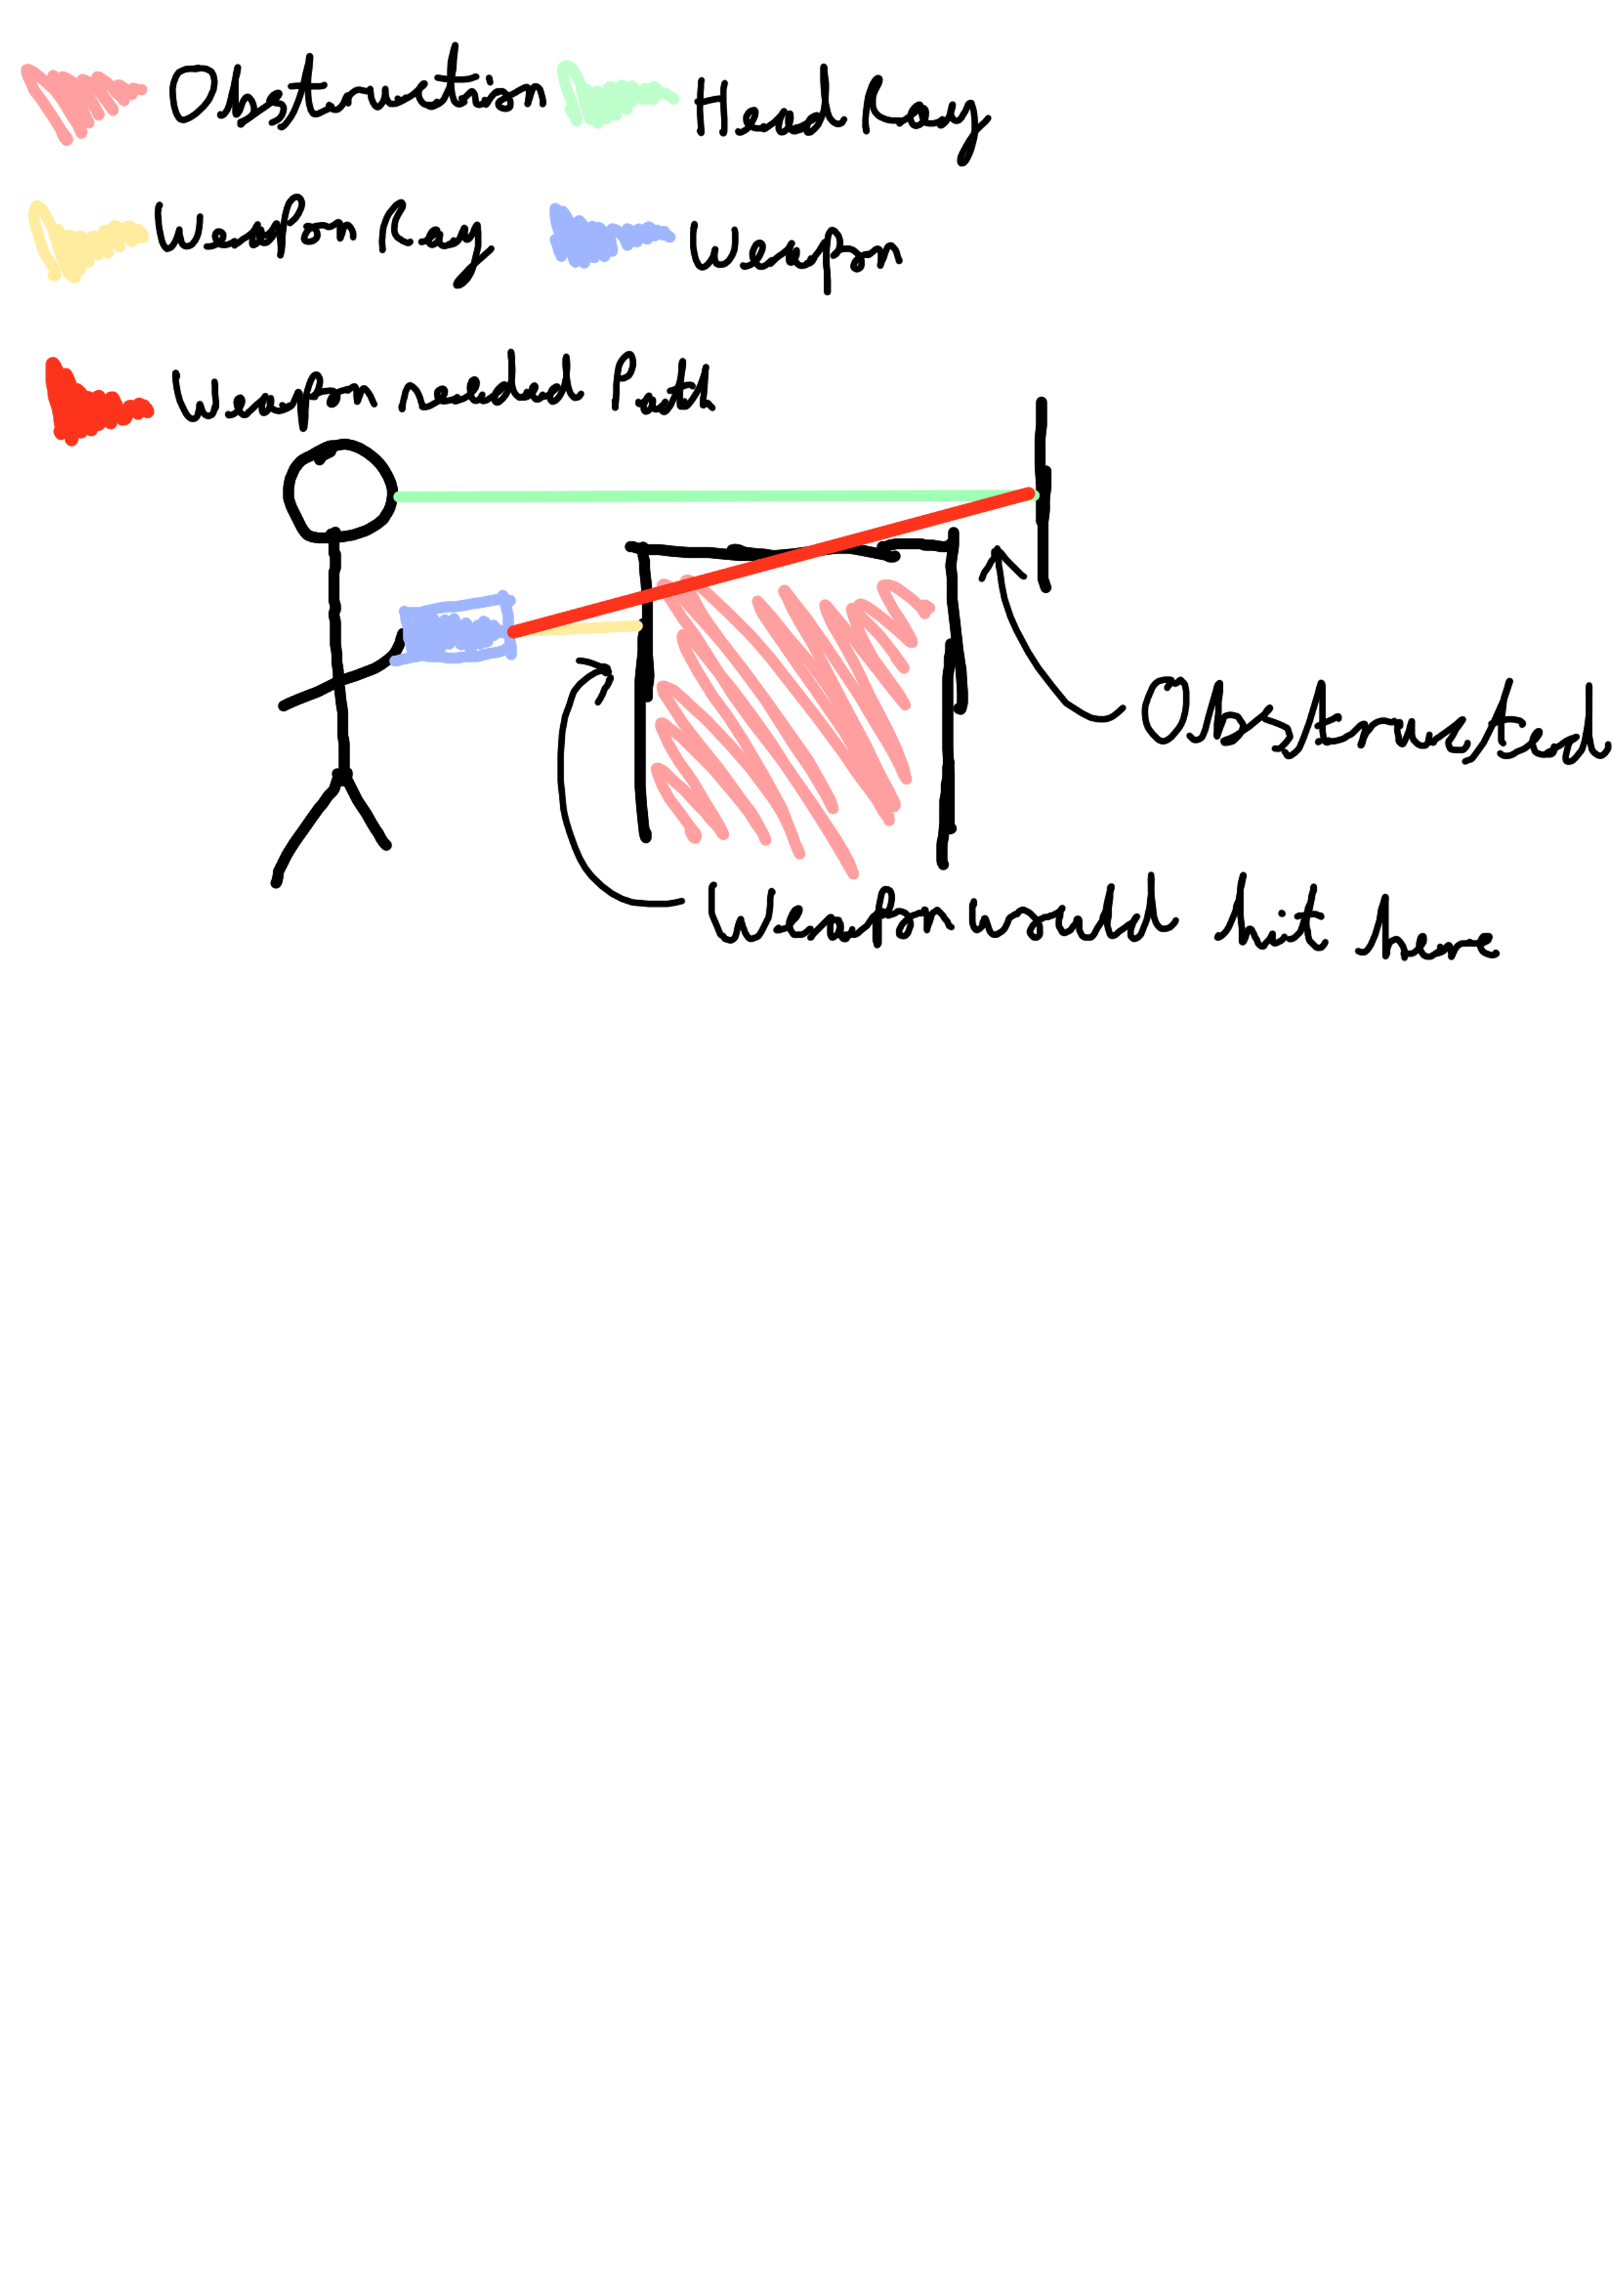 Obstruction Head Ray
Weapon Ray Weapon
Weapon needed Path
Obstructed
Weapon would hit here